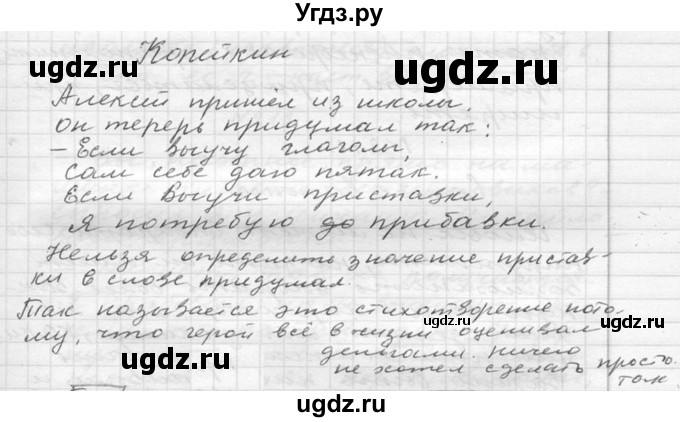 Угдз.ру
Копейкин
ugdz.ru
ugdz.ru
Алексей пришёл из школы,
Он терерь придумал так:
– Если выучу глаголы,
Сам себе даю пятак.
Если Выучи приставки,
Я потребую до прибавки.
Нельзя определить значение пристав-
ки в слове придумал.
ugdz.ru
Так называется это стихотворение пото-
му, что герой всё в жизни оценивал
ugdz.ru
ugdz.ru
деньгами. ничего
не хотел сделать просто.
так
ugdz.ru